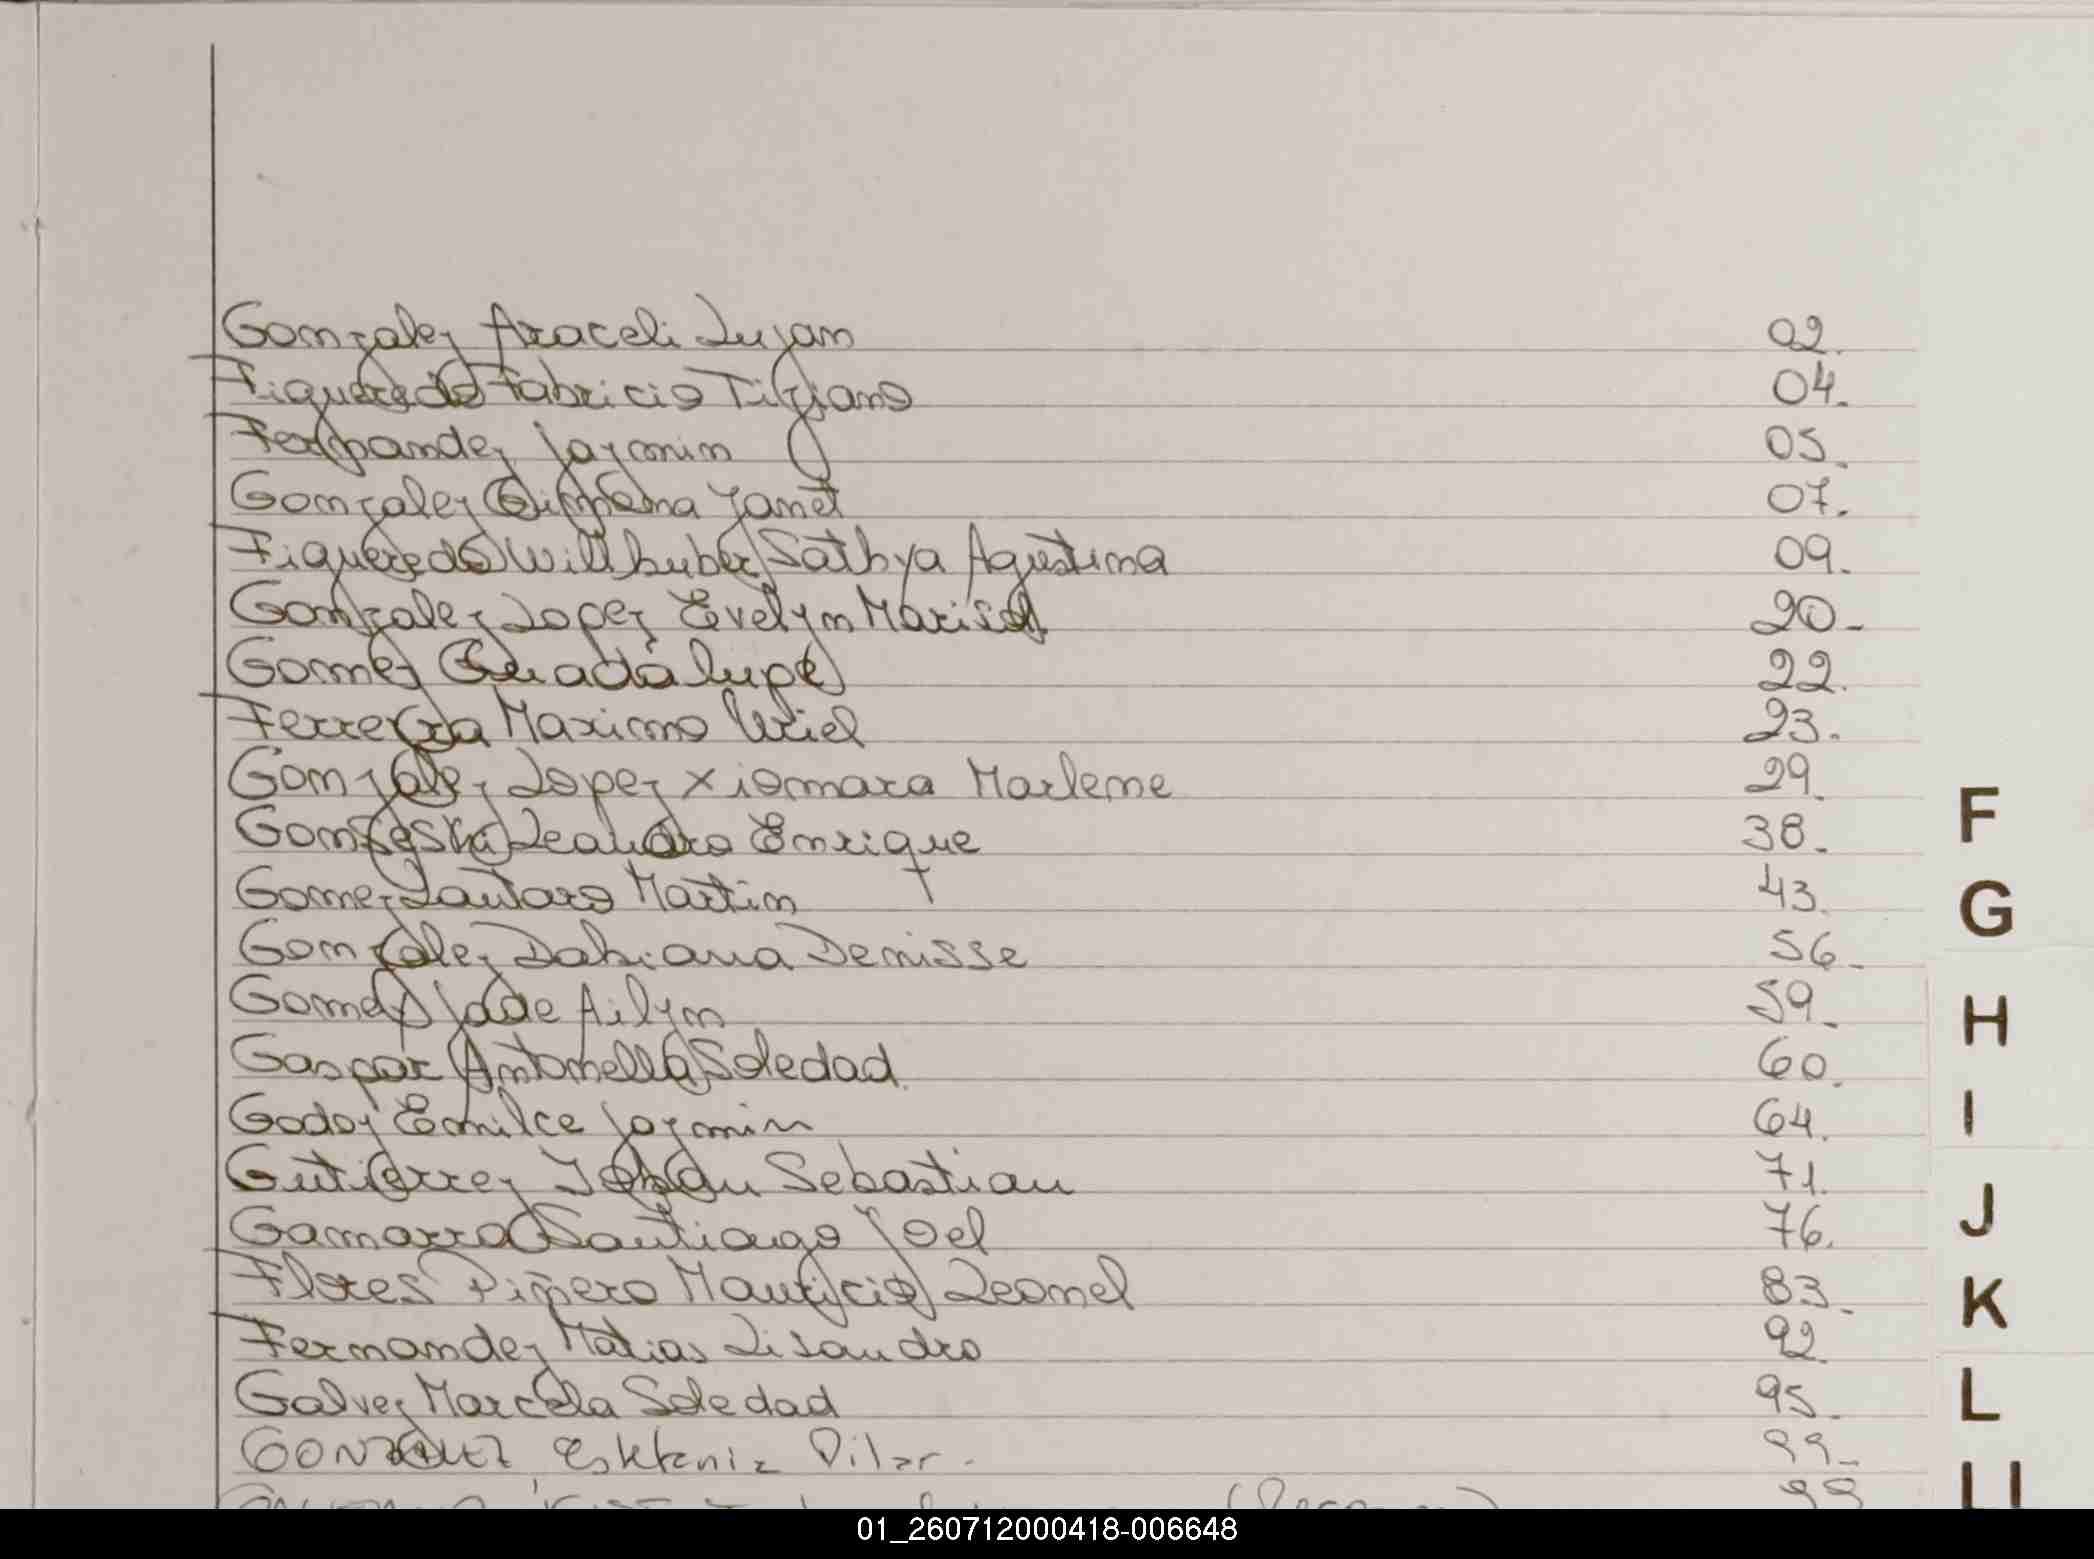 Gonzalez Araceli Lujan 02.
Figueredo Fabricio Tiziano 04.
Fernandez Jazmin 05.
Gonzalez Gimena Janet 07.
Figueredo Willhuber Sathya Agustina 09.
Gonzalez Lopez Evelyn Marisol 20.
Gomez Guadalupe 22.
Ferreyra Maximo Uriel 23.
Gonzalez Lopez Xiomara Marlene 29.
F
Leandro Enrique 38.
Gomez Lautaro Martin 43.
G
Gonzalez Dahiana Denisse 56.
Gomez Jade Ailyn 59.
H
Gaspar Antonella Soledad 60.
Godoy Emilce Jazmin 64.
I
Gutierrez Sebastian 71.
Gamarra Santiago Joel 76.
J
Flores Piñero Mauricio Leonel 83.
K
Fernandez Matias Lisandro 92.
Galvez Marcela Soledad 95.
L
GONZALEZ Pilar. 99.
LL
01_260712000418-006648